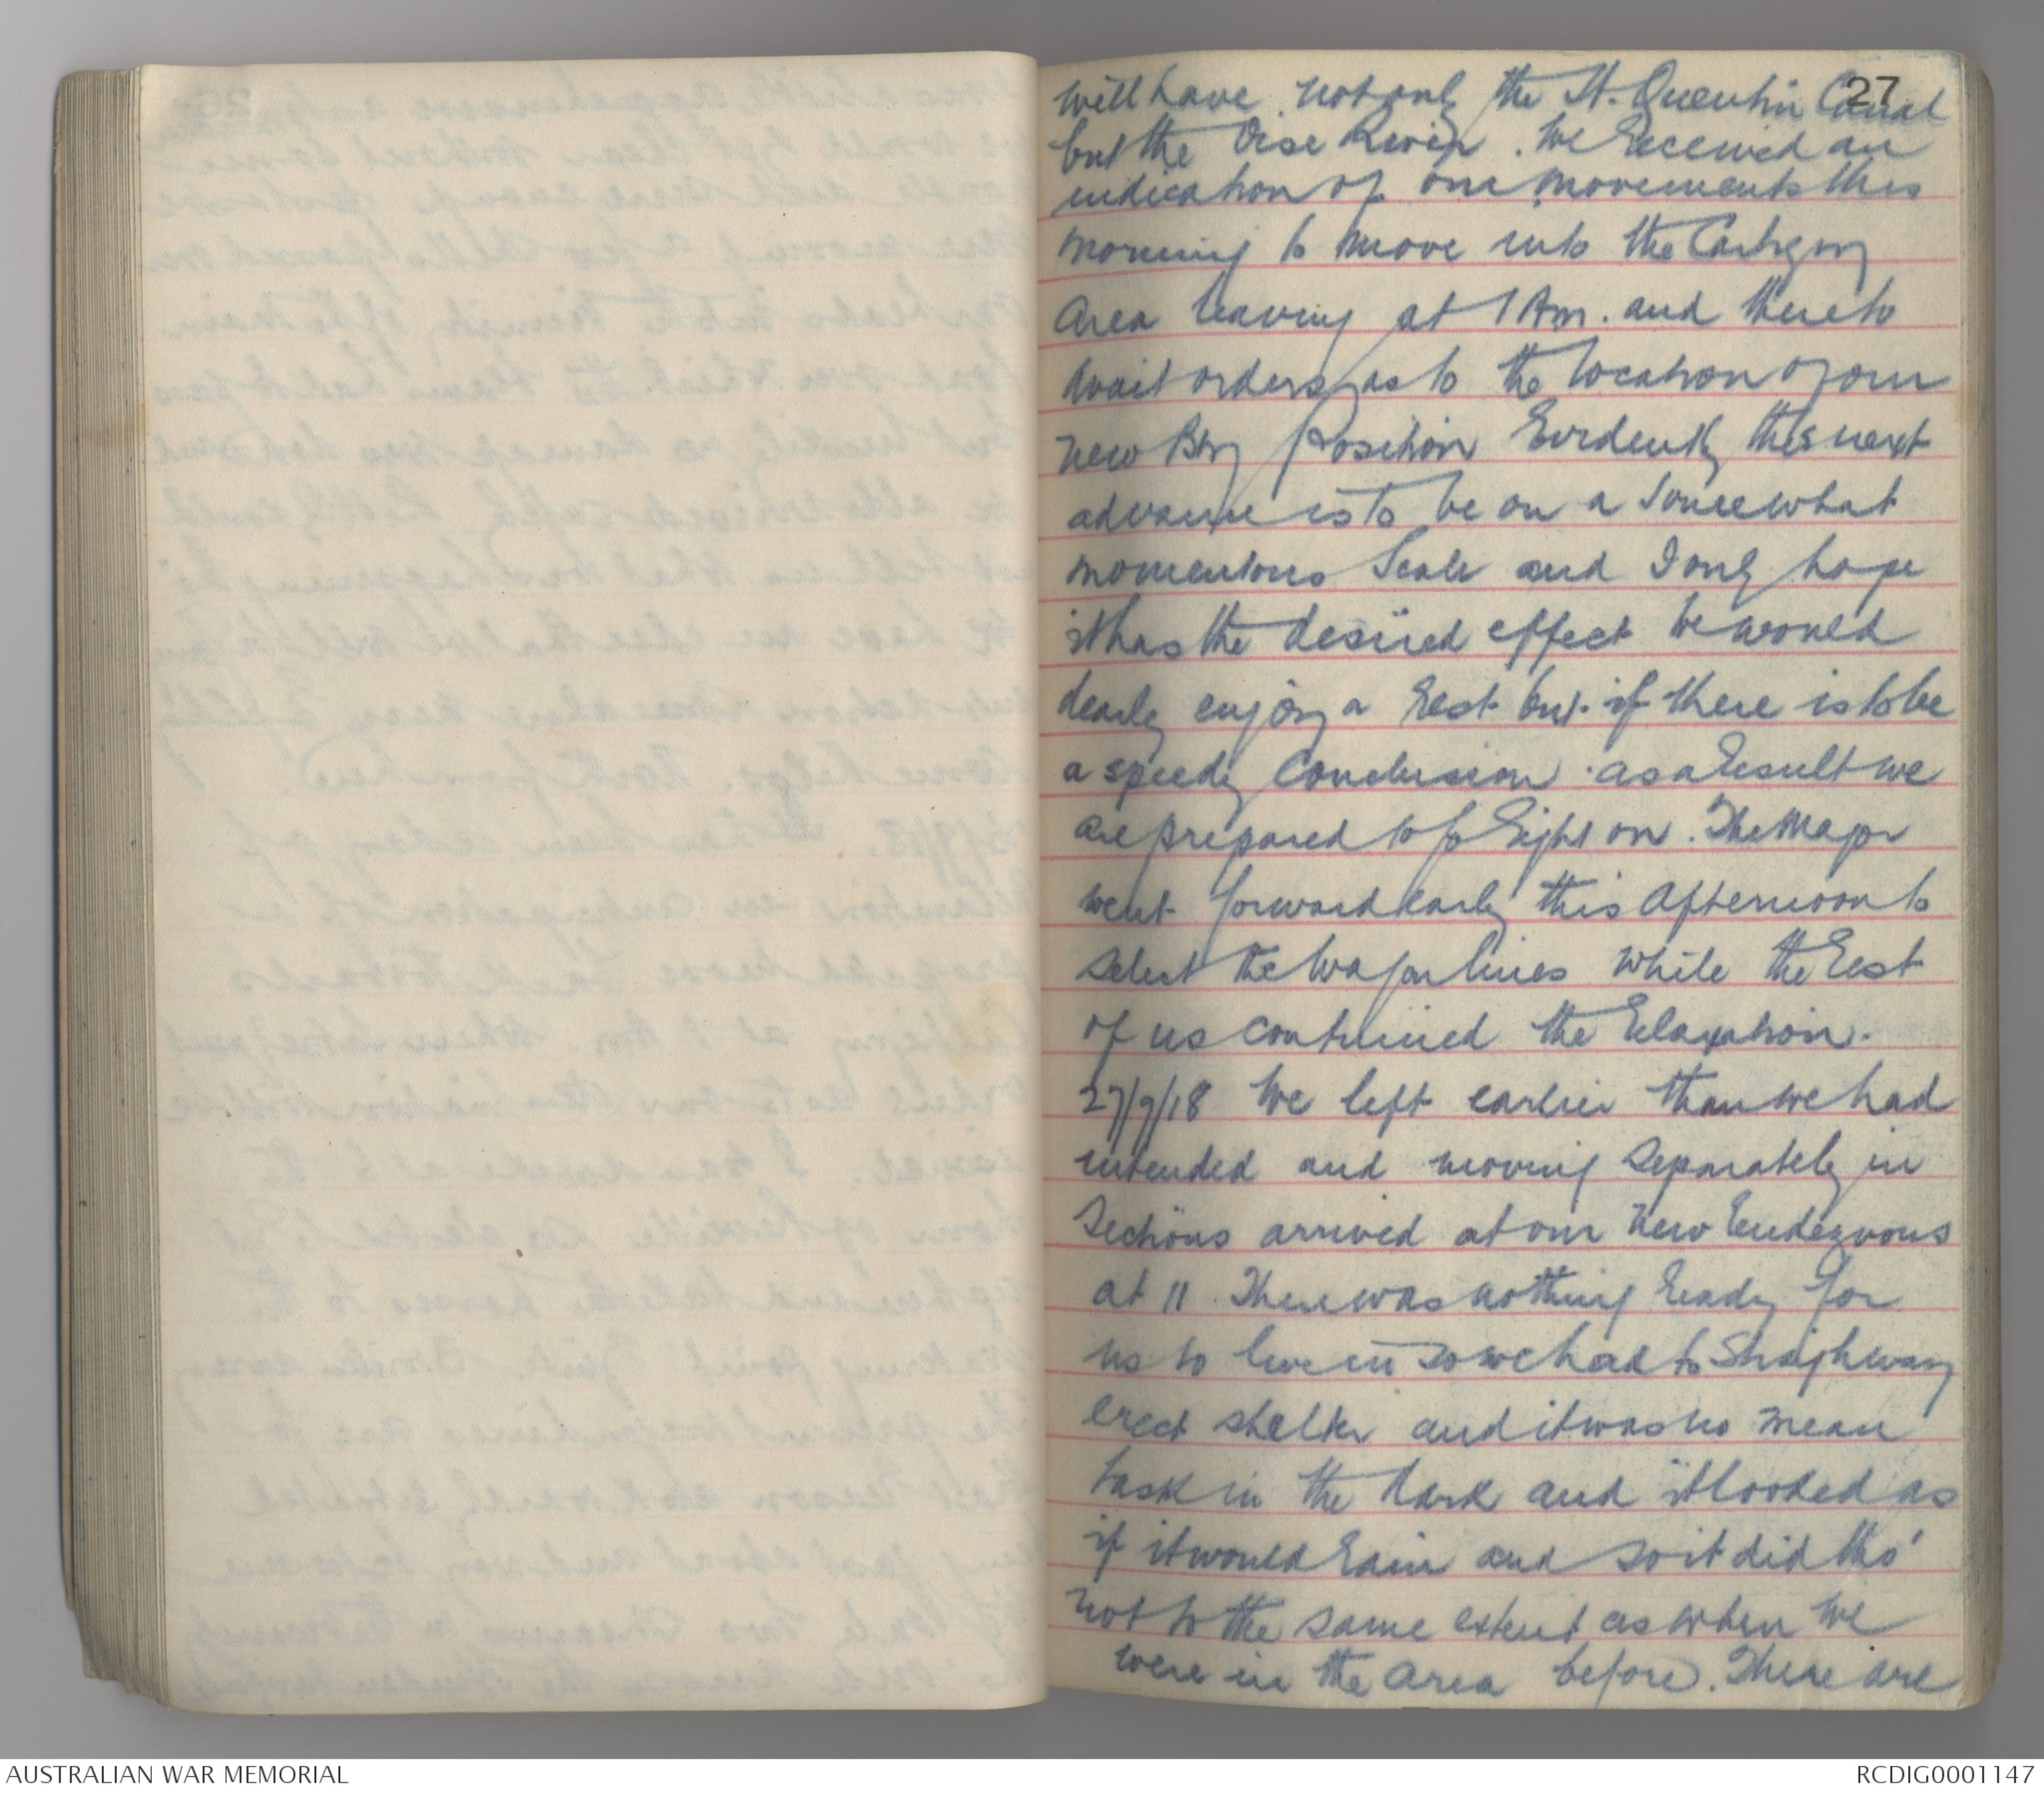 27
will have not only the St. Quentin Canal
but the Oise River. We received an
indication of our movements this
morning to move into the Cartigny
area leaving at 7 Am. and there to
await orders as to the location of our
new Bty Position Evidently this next
advance is to be on a somewhat
momentous Scale and I only hope
it has the desired effect We would
dearly enjoy a rest but if there is to be
a speedy Conclusion as a result we
are prepared to fight on. The Major
went forward early this afternoon to
select the wagon lines while the rest
of us continued the relaxation.
27/9/18 We left earlier than we had
intended and moving separately in
Sections arrived at our new rendezvous
at 11. There was nothing ready for
us to live in so we had to straightway
erect shelter and it was no mean
task in the dark and it looked as
if it would rain and so it did tho'
not to the same extent as when we
were in the area before. There are
AUSTRALIAN WAR MEMORIAL
RCDIG0001147